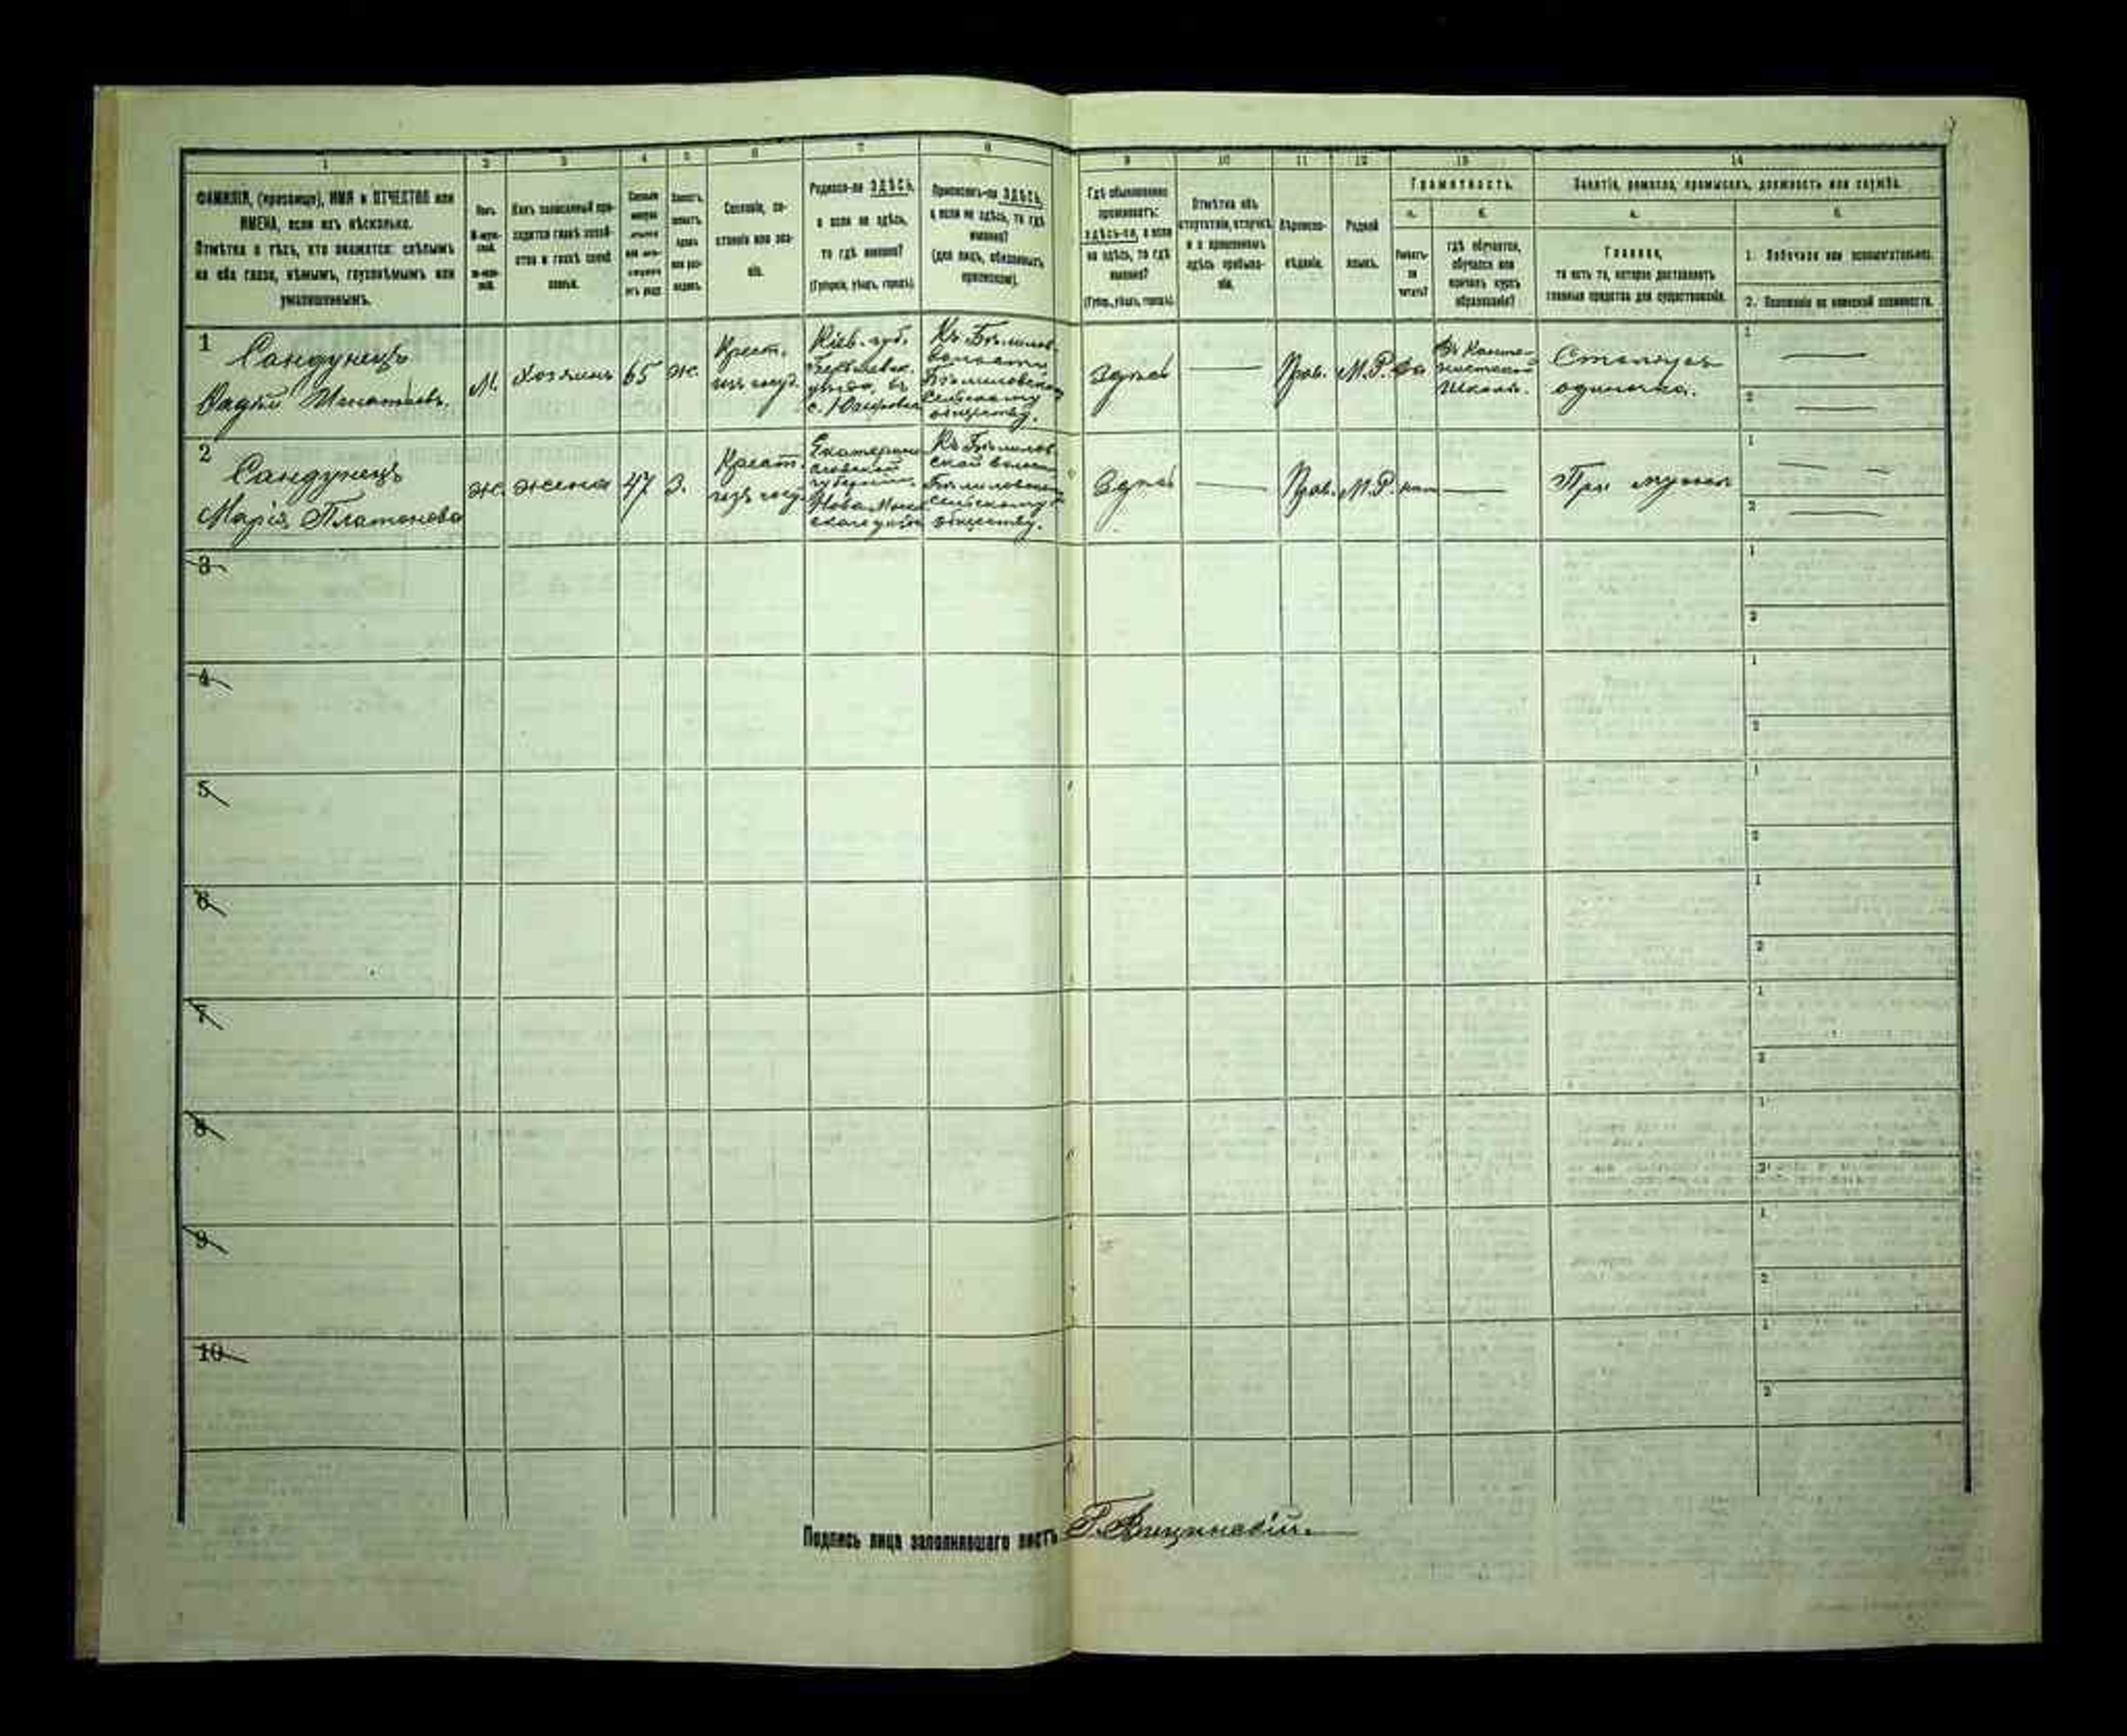 1 2 3 4 5 6 7 8 9 10 11 12 13 14
ФАМИЛІЯ, (прозвище), ИМЯ и ОТЧЕСТВО или
ИМЕНА, если ихъ нѣсколько.
Отмѣтка о тѣхъ, кто окажется: слѣпымъ
на оба глаза, нѣмымъ, глухонѣмымъ или
умалишеннымъ.
Полъ.
М-муж-
ской.
Ж-жен-
скій.
Какъ записанный при-
ходится главѣ хозяй-
ства и главѣ своей
семьи.
Сколько
минуло
лѣтъ
Холостъ,
женатъ,
вдовъ
или раз-
веденъ.
Сословіе, со-
стояніе или зва-
ніе.
Родился-ли ЗДѢСЬ,
а если не здѣсь,
то гдѣ именно?
(Губернія, уѣздъ, городъ).
Приписанъ-ли ЗДѢСЬ,
а если не здѣсь, то гдѣ
именно?
(для лицъ, обязанныхъ
припискою).
Гдѣ обыкновенно
проживаетъ:
здѣсь-ли, а если
не здѣсь, то гдѣ
именно?
(Губер., уѣздъ, городъ).
Отмѣтка объ
отсутствіи, отлучкѣ
и о временномъ
здѣсь пребыва-
ніи.
Вѣроиспо-
вѣданіе.
Родной
языкъ.
Грамотность.
а.
Умѣетъ-
ли
читать?
б.
гдѣ обучается,
обучался или
кончилъ курсъ
образованія?
Занятіе, ремесло, промыселъ, должность или служба.
а.
Главное,
то есть то, которое доставляетъ
главныя средства для существованія.
б.
1. Побочное или вспомогательное.
2. Положеніе по воинской повинности.
1
Сандунецъ
Фадѣй Игнатіевъ.
М.
Хозяинъ
65
ж.
Крест.
изъ госуд.
Кіев. губ.
уѣзда, въ
Къ Бѣлилов.
волости,
Бѣлиловскому
сельскому
обществу.
Здѣсь
Прав.
М.Р.
да
школѣ.
Столяръ
одиночка.
1
2
2
Сандунецъ
Марія Платонова
Ж.
жена
47
З.
Крест.
изъ госуд
Екатерино
славской
губерніи,
Ново Моск
скаго уѣзда
Къ Бѣлилов
ской волости
Бѣлиловскому
сельскому
обществу.
Здѣсь
Прав.
М.Р.
нѣт
При мужѣ
1
2
3
1
2
4
1
2
5
1
2
6
1
2
7
1
2
8
1
2
9
1
2
10
1
2
Подпись лица заполнявшаго листъ